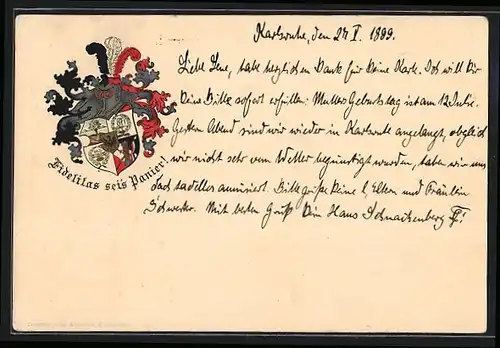 Karlsruhe, den 27. V. 1899.
Liebe Lene, habe herzlichen Dank für Deine Karte. Ich will Dir
Deine Bitte sofort erfüllen: Mutters Geburtstag ist am 12. Julie.
Gestern Abend sind wir wieder in Karlsruhe angelangt, obgleich
wir nicht sehr vom Wetter begünstigt wurden, haben wir uns
doch tadellos amüsiert. Bitte grüße Deine l. Eltern und Fräulein
Schwester. Mit besten Gruß Dein Hans Schnackenberg
Fidelitas sei's Panier!